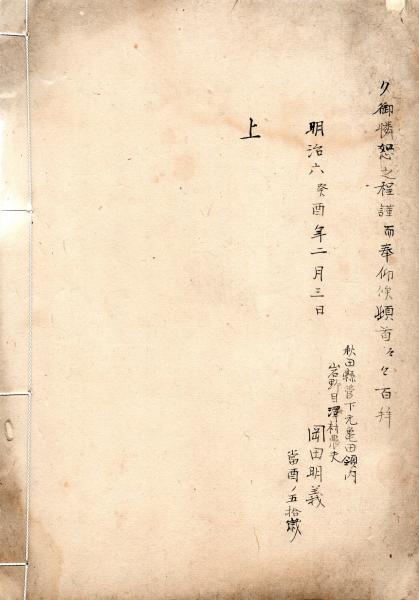 夕御憐恕之程謹而奉仰候頓首々々百拝
明治六癸酉年二月三日
秋田縣管下元亀田領内
岩野目澤村農夫
岡田明義
當酉ノ五拾歳
上